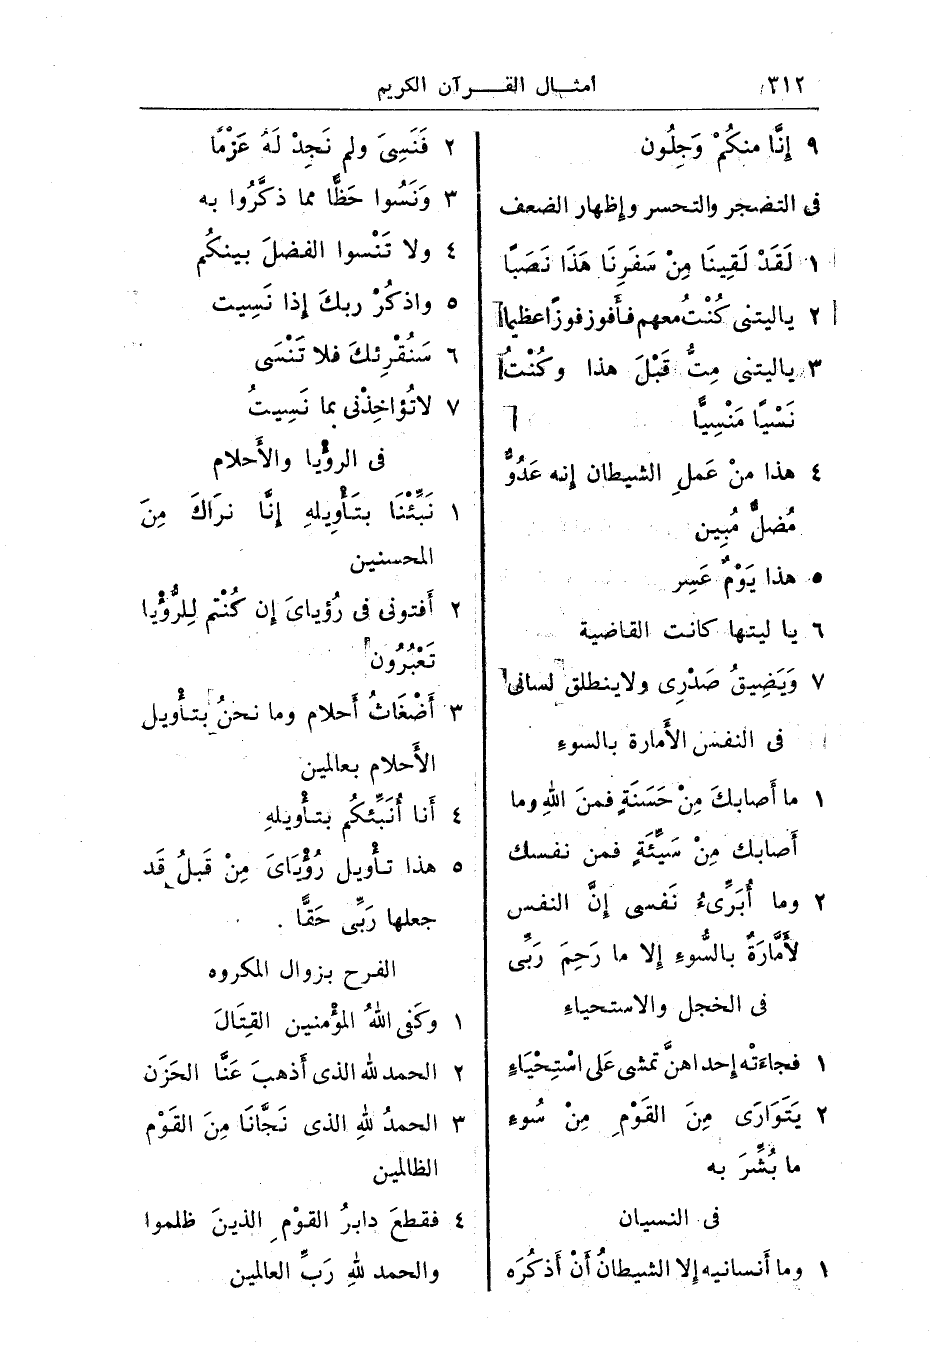 ٣١٢ أمثال القرآن الكريم
٩ إِنَّا منكمْ وَجِلُون
فى التضجر والتحسر وإظهار الضعف
١ لَقَدْ لَقِينَا مِنْ سَفَرِنَا هَذَا نَصَبًا
٢ ياليتنى كُنْتُ معهم فأفوز فوزًا عظيما
٣ ياليتنى مِتُّ قَبْلَ هذا وكُنْتُ
نَسْيًا مَنْسِيًّا
٤ هذا منْ عَملِ الشيطان إنه عَدُوٌّ
مُضلٌّ مُبِين
٥ هذا يَوْمٌ عَسِر
٦ يا ليتها كانت القاضية
٧ وَيَضِيقُ صَدْرِى ولاينطلق لسانى
فى النفس الأمارة بالسوءِ
١ ما أصابكَ مِنْ حَسَنَةٍ فمنَ اللهِ وما
أصابك مِنْ سَيِّئَةٍ فمن نفسك
٢ وما أُبَرِّىءُ نَفسى إنَّ النفس
لأمَّارَةٌ بالسُّوءِ إلا ما رَحِمَ رَبِّى
فى الخجل والاستحياءِ
١ فجاءَتْه إحداهنَّ تمشى عَلى اسْتِحْيَاءٍ
٢ يَتَوَارَى مِنَ القَوْمِ مِنْ سُوءِ
ما بُشِّرَ به
فى النسيان
١ وما أنسانيه إلا الشيطانُ أنْ أَذكُرَه
٢ فَنَسِىَ ولم نَجِدْ لَهُ عَزْمًا
٣ وَنَسُوا حَظًّا مما ذكَّرُوا به
٤ ولا تَنْسوا الفضلَ بينكُم
٥ واذكُرْ ربكَ إذا نَسِيت
٦ سَنُقْرِئكَ فلا تَنْسَى
٧ لاتُؤاخِذْنى بما نَسِيتُ
فى الرؤيا والأحلام
١ نَبِّئْنَا بتَأْوِيلهِ إنَّا نرَاكَ مِنَ
المحسنين
٢ أفتونى فى رُؤياىَ إن كُنْتم لِلرُّؤْيا
تَعْبُرُون
٣ أضْغَاثُ أحلام وما نحنُ بتأْويل
الأَحلام بعالمين
٤ أنا أُنَبِّئكُم بتأْويلهِ
٥ هذا تأْويل رُؤْيَاىَ مِنْ قَبلُ قَد
جعلها رَبِّى حَقًّا .
الفرح بزوال المكروه
١ وكَفى اللهُ المؤْمنين القِتَالَ
٢ الحمد لله الذى أذهبَ عَنَّا الحَزَن
٣ الحمدُ للهِ الذى نَجَّانَا مِنَ القَوْم
الظالمين
٤ فقطعَ دابرُ القوْمِ الذينَ ظلموا
والحمد للهِ رَبِّ العالمين